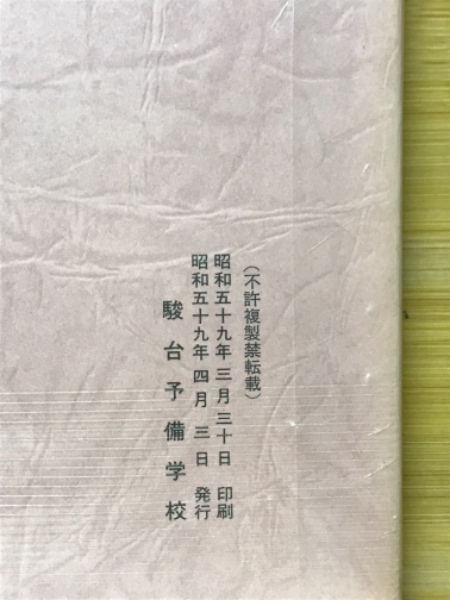 (不許複製禁転載)
昭和五十九年三月三十日 印刷
昭和五十九年四月 三日 発行
駿台予備学校